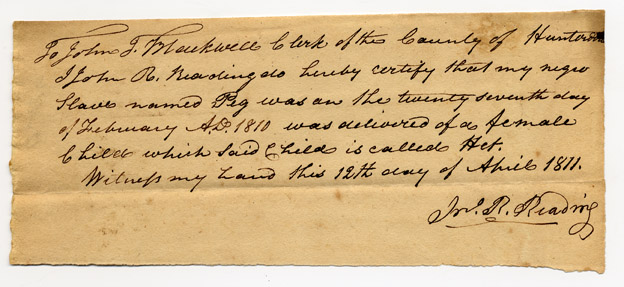 To John T. Blackwell Clerk of the County of Hunterdon
I John R. Reading do hereby certify that my negro
Slave named Peg was on the twenty seventh day
of February AD. 1810 was delivered of a female
Child which Said Child is called Het.
Witness my hand this 12th day of April 1811.
Jno. R. Reading